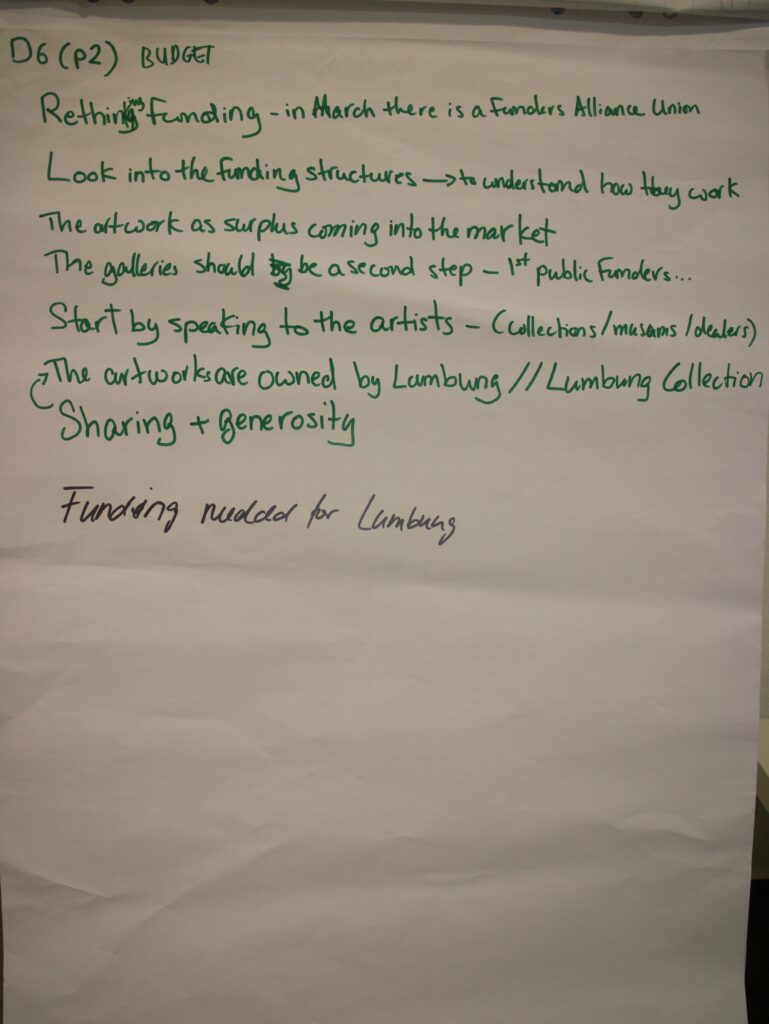 D6 (P2) BUDGET
Rethinking Funding - in March there is a Funders Alliance Union
Look into the funding structures → to understand how they work
The artwork as surplus coming into the market
The galleries should be a second step - 1st public Funders...
Start by speaking to the artists - (collections/museums/dealers)
The artworks are owned by Lumbung // Lumbung Collection
Sharing + generosity
Funding needed for Lumbung